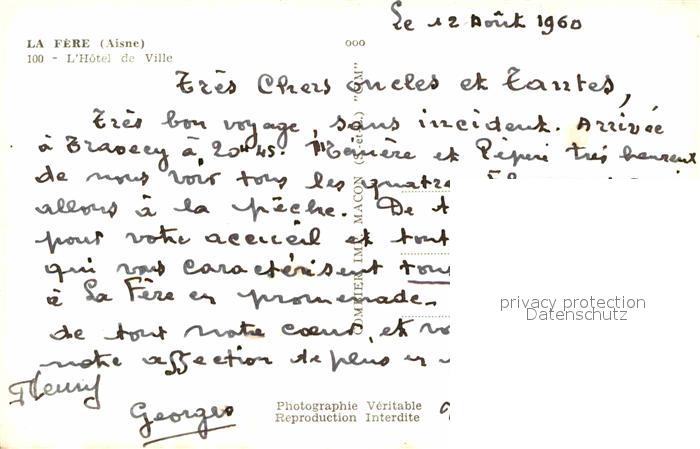 Le 12 Août 1960
LA FÈRE (Aisne)
100 - L'Hôtel de Ville
ooo
Très Chers oncles et Tantes,
Très bon voyage, sans incident. Arrivée
à Travecy à 20H45. Mémère et Pépère très heureux
de nous voir tous les quatre.
allons à la pêche. De
pour votre accueil et tout
qui vous caractérisent tous
à La Fère en promenade.
de tout notre cœur, et
notre affection de plus en
Fleury
Georges
COMBIER IMP. MACON (S.-et-L.) "CIM"
Photographie Véritable
Reproduction Interdite
privacy protection
Datenschutz